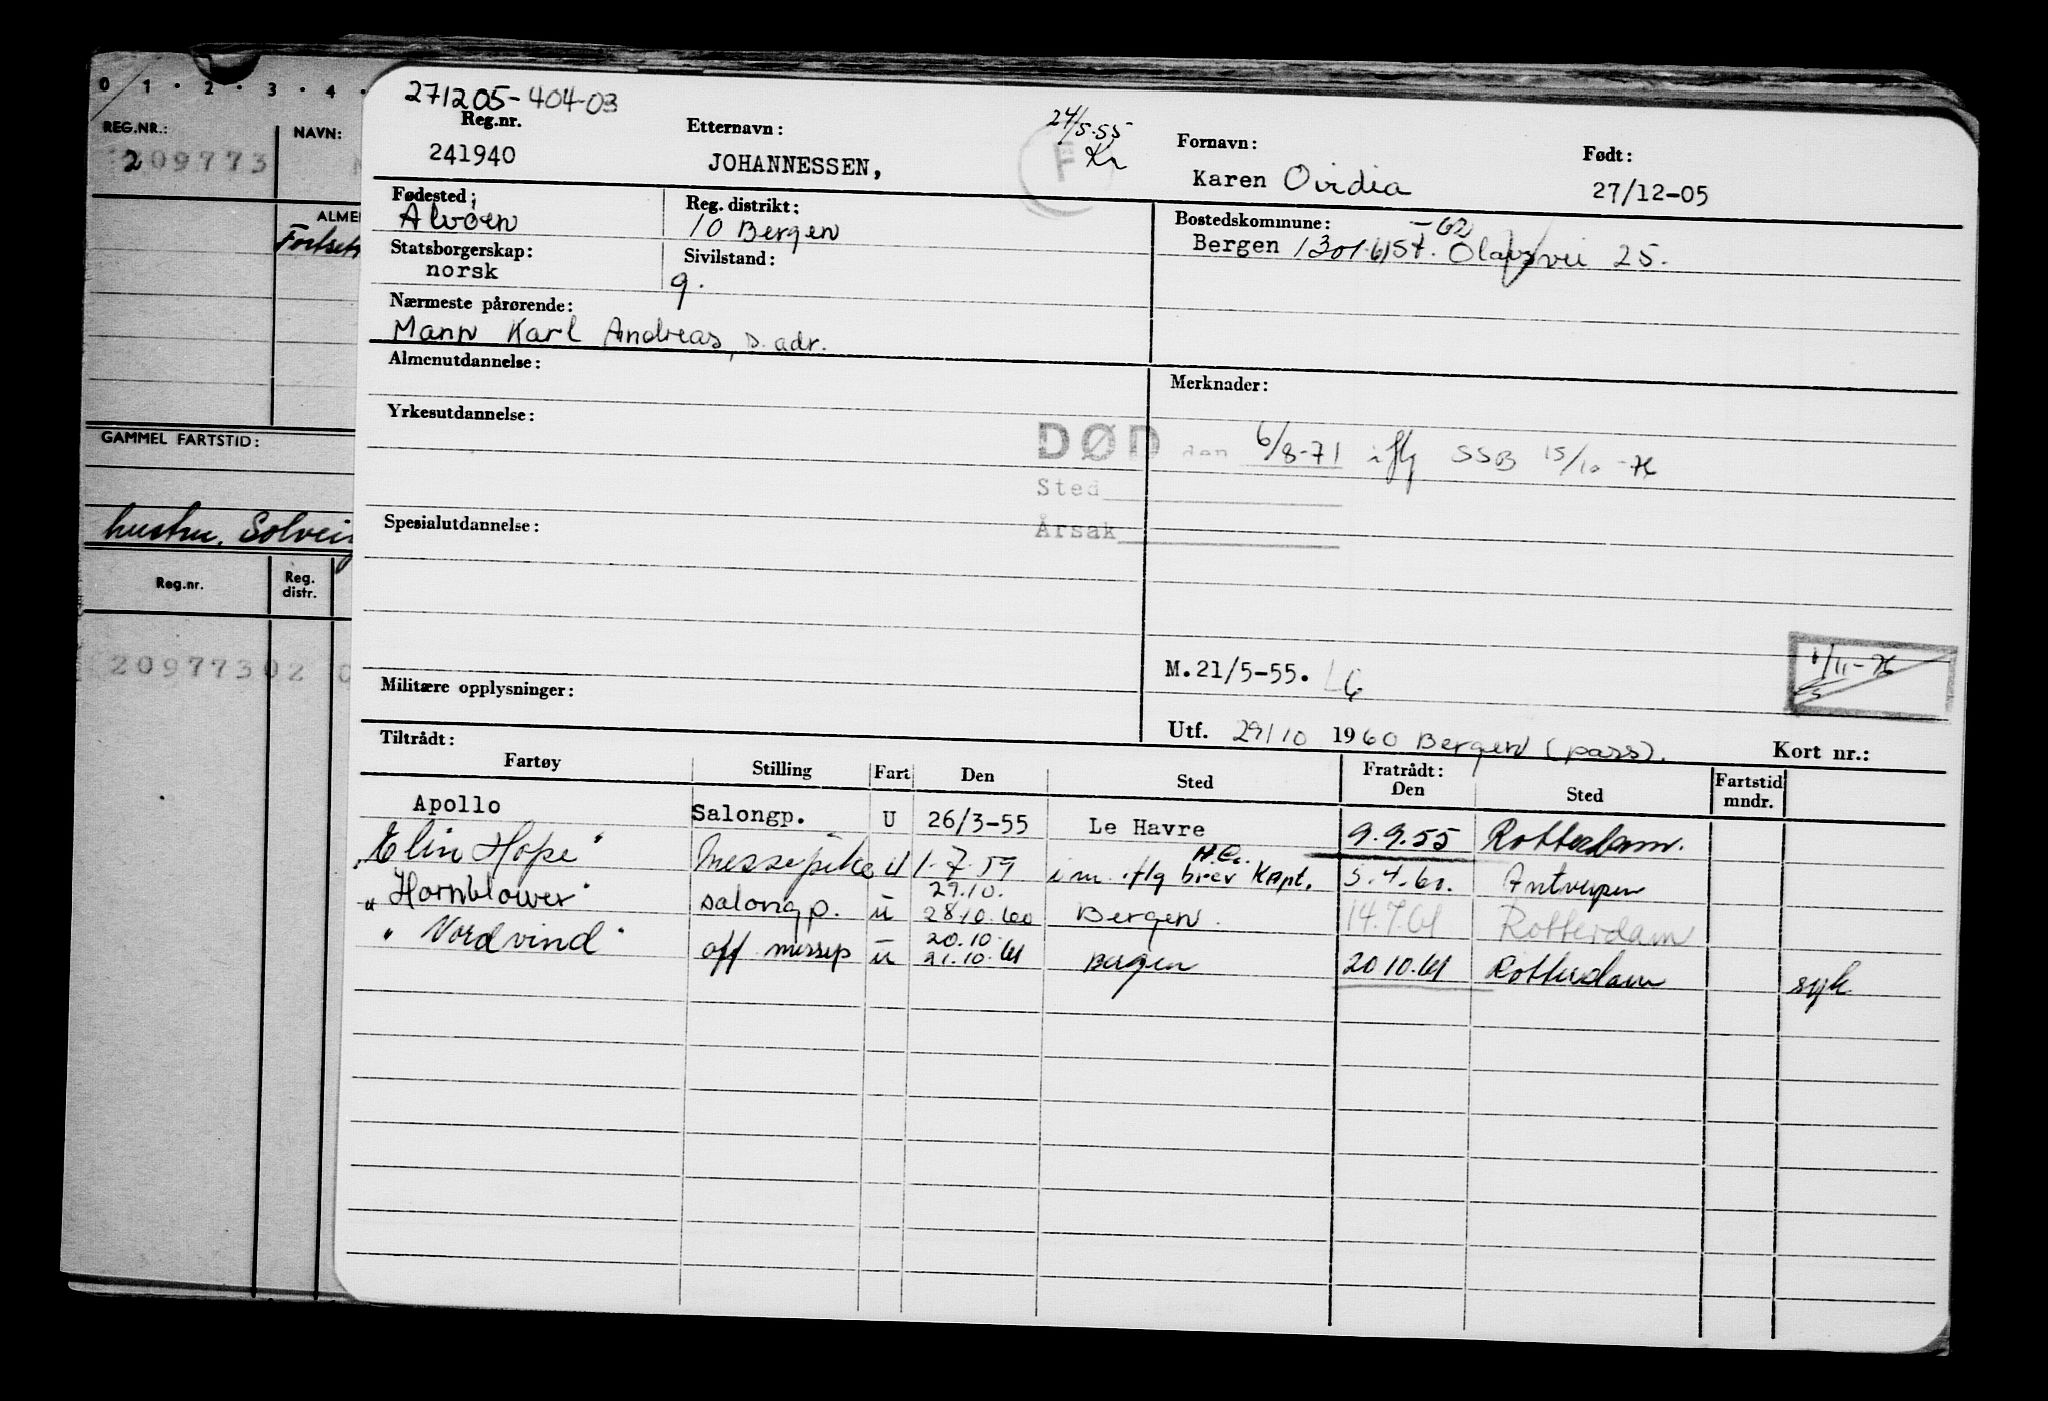 0 · 1 · 2 · 3 · 4 ·
REG.NR.:
NAVN:
209773
ALME
Fortset
GAMMEL FARTSTID:
hustru, Solveig
Reg.nr.
Reg. distr.
20977302 0
271205-404-03
Reg.nr.
241940
Etternavn:
JOHANNESSEN,
24/5-55
Kr
F
Fornavn:
Karen Ovidia
Født:
27/12-05
Fødested:
Alvøen
Reg. distrikt:
10 Bergen
Bostedskommune:
-62
Bergen 1301-61 St. Olavs vei 25.
Statsborgerskap:
norsk
Sivilstand:
g.
Nærmeste pårørende:
Mann Karl Andreas, s. adr.
Almenutdannelse:
Merknader:
Yrkesutdannelse:
DØD den 6/8-71 iflg SSB 15/10-76
Sted
Spesialutdannelse:
Årsak
M.21/5-55.
1/11-76
Militære opplysninger:
Utf. 29/10 1960 Bergen (pass).
Kort nr.:
Tiltrådt:
Fartøy Stilling Fart Den Sted Fratrådt: Den Sted Fartstid mndr.
Apollo Salongp. U 26/3-55 Le Havre 9.9.55 Rotterdam.
"Elin Hope" Messepike U 1.7.59 i m. iflg brev Kapt. 5.4.60. Antverpen
"Hornblower" salongp. u 29.10. 28.10.60 Bergen. 14.7.61 Rotterdam
"Nordvind" off messep u 20.10. 21.10.61 Bergen 20.10.61 Rotterdam syk